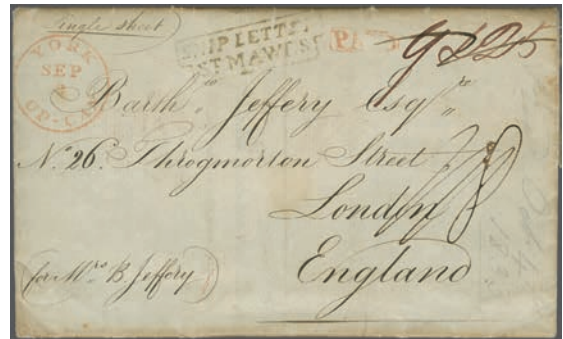 Single sheet
YORK
SEP
UP. CA
SHIP LETTER
ST MAWES
PAID
Barthw Jeffery Esqre
No. 26. Throgmorton Street
London
England
for Mrs. B. Jeffery